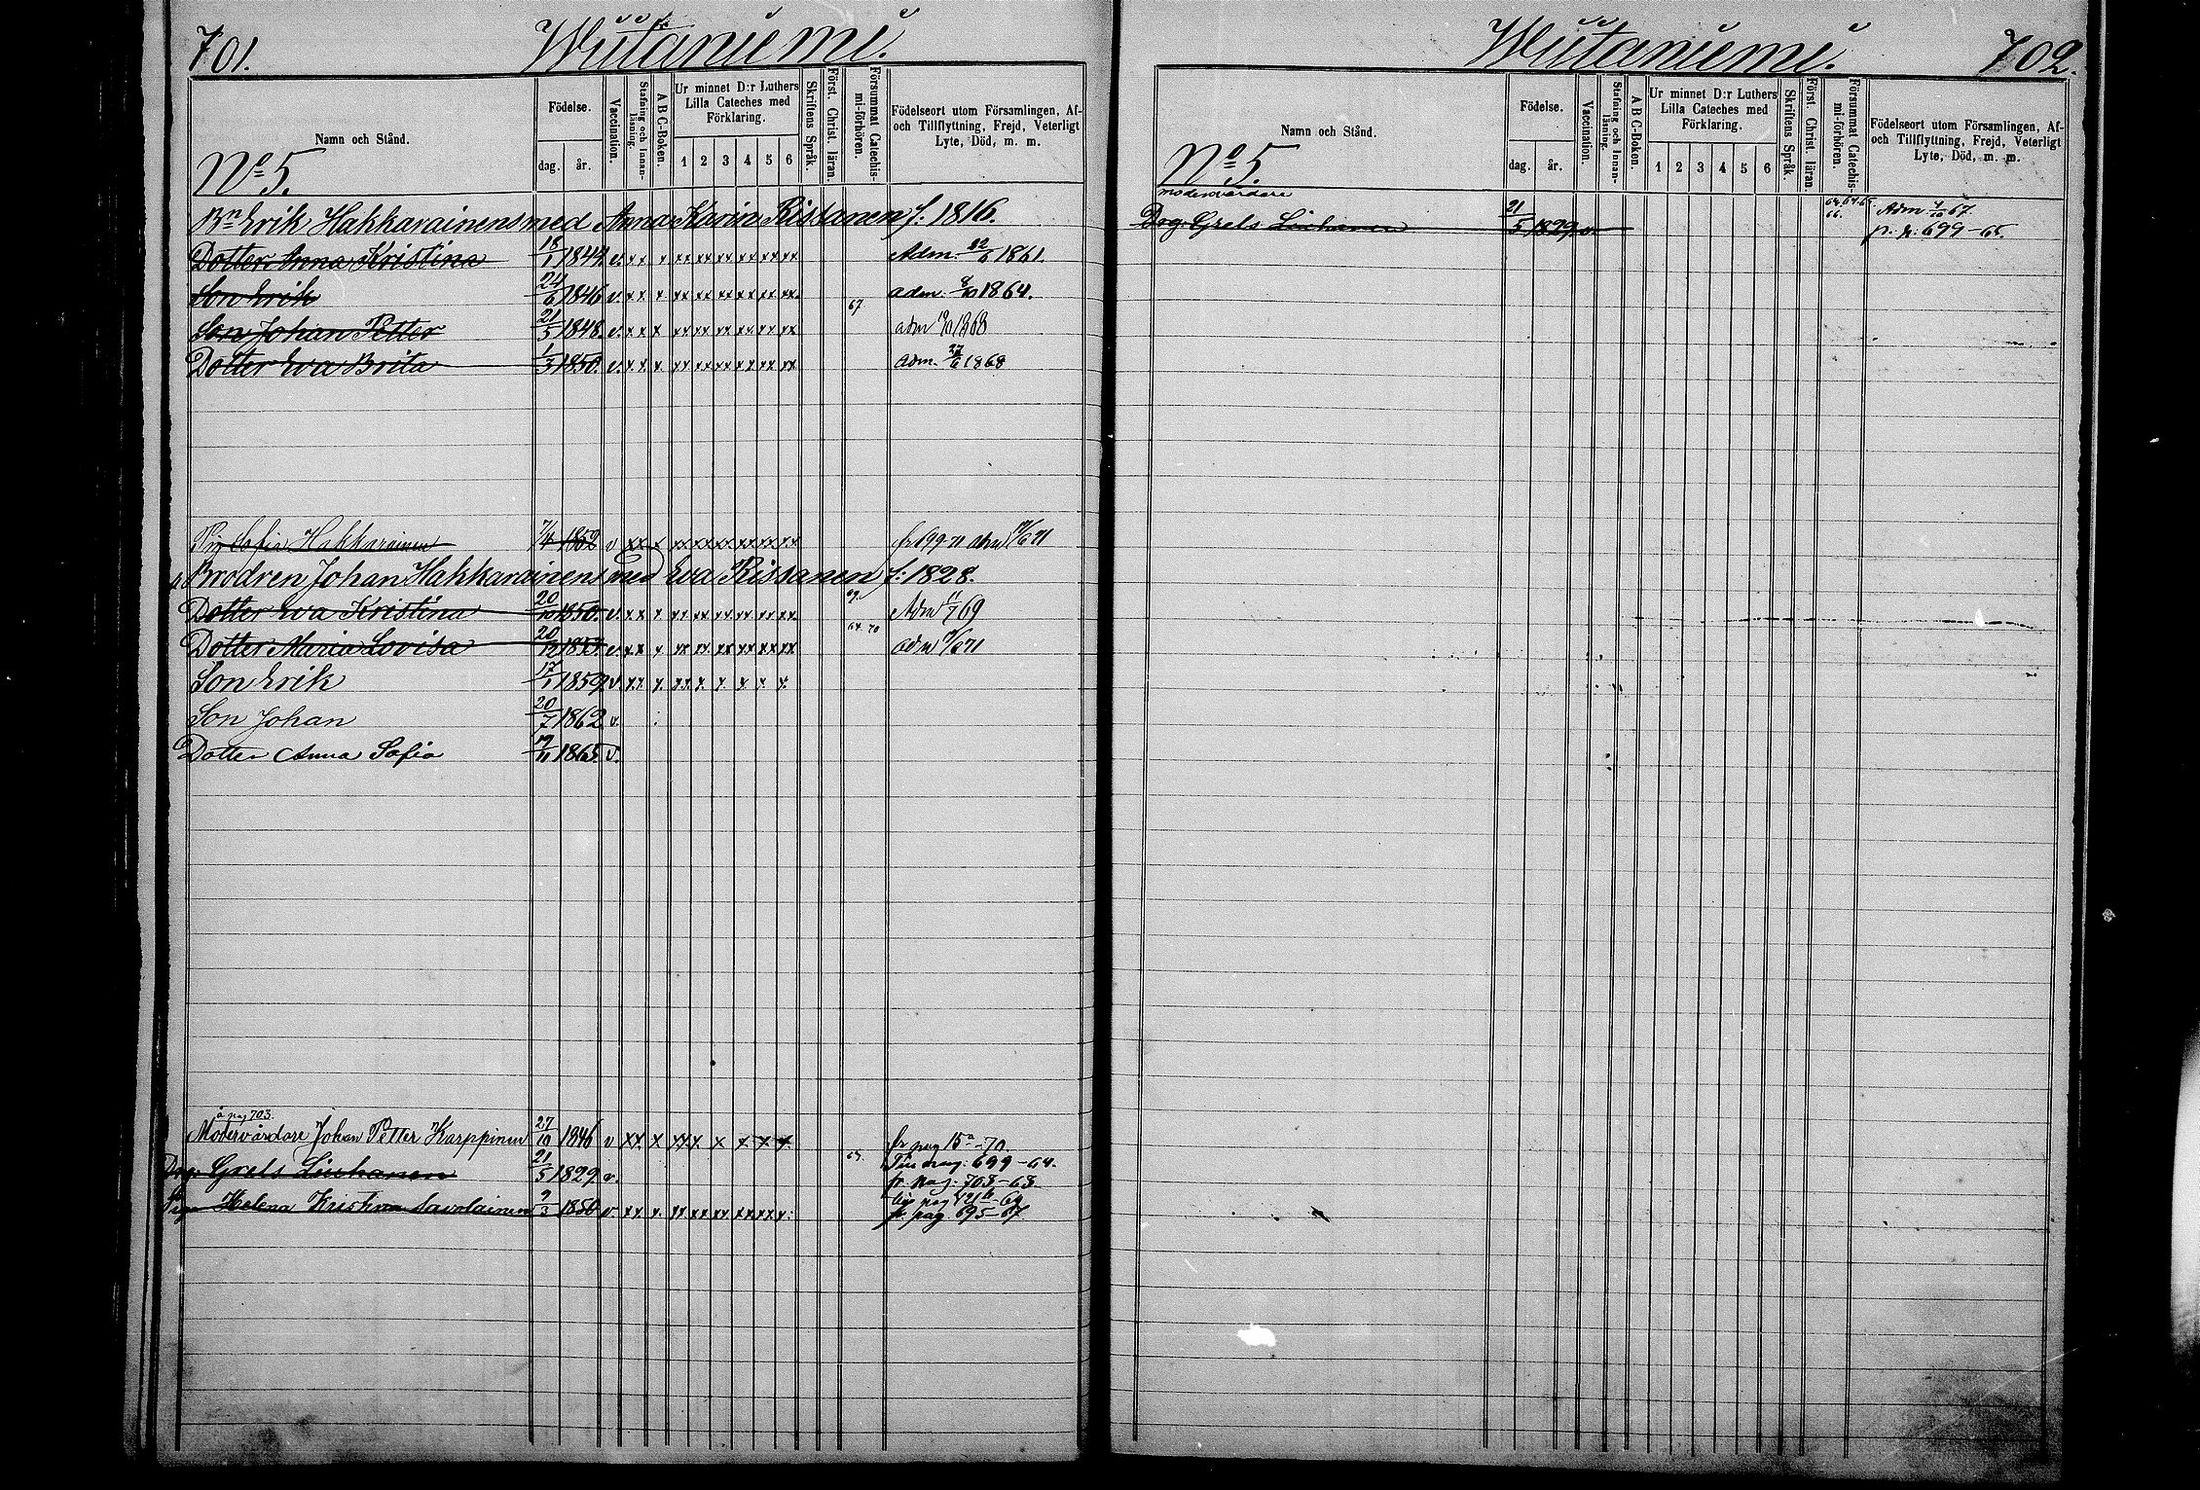 701. Wiitaniemi.
Namn och Stånd.
Födelse.
dag. år.
Vaccination.
Stafning och Innanläsning.
A B C-Boken.
Ur minnet D:r Luthers Lilla Cateches med Förklaring.
1 2 3 4 5 6
Skriftens Språk.
Först. Christ. läran.
Försummat Catechismi-förhören.
Födelseort utom Församlingen, Af- och Tillflyttning, Frejd, Veterligt Lyte, Död, m. m.
No 5.
Bn Erik Hakkarainens med Anna Karin Rissanen f: 1816.
Dotter Anna Kristina 18/1 1844 v. xx x xx xx xx xx xx xx Adm. 22/6 1861.
Son Erik 24/6 1846 v. xx x xx xx xx xx xx xx adm. 9/10 1864.
67.
Son Johan Petter 21/5 1848 v. xx x xx xx xx xx xx xx adm 1868
Dotter Eva Brita 1/3 1850. v. xx x xx xx xx xx xx xx adm. 27/6 1868
Pig Sofia Hakkarainen 7/4 1852 v xx x xx xx xx xx xx xx fr 699-71 adm 71
Brodren Johan Hakkarainens med Eva Rissanen f: 1828.
Dotter Eva Kristina 20/10 1850 v. xx x xx xx xx xx xx xx 69
64. 70
Dotter Maria Lovisa 20/12 v. xx x xx xx xx xx xx xx adm 71
Son Erik 17/1 1859 v. xx x. xx x. x x x. x.
Son Johan 20/7 1862 v.
Dotter Anna Sofia 19/11 1865 v.
å pag 703.
Modervårdare Johan Petter Karppinen 27/10 1846 v xx x xxx x x x x fr pag 15a-70
Drg. Grels Liuhanen 21/5 1829 v. 699-64.
fr. pag. 703-68.
Piga Helena Kristina Savolainen 9/3 1850 v. xx x. xx xx xx xx xx x.
fr pag 695-67
Wiitaniemi. 702.
Namn och Stånd.
Födelse.
dag. år.
Vaccination.
Stafning och Innanläsning.
A B C-Boken.
Ur minnet D:r Luthers Lilla Cateches med Förklaring.
1 2 3 4 5 6
Skriftens Språk.
Först. Christ. läran.
Försummat Catechismi-förhören.
Födelseort utom Församlingen, Af- och Tillflyttning, Frejd, Veterligt Lyte, Död, m. m.
No 5.
modervårdare
Drg. Grels Liuhanen 21/5 1829 v. 66. Adm 67.
699-65.